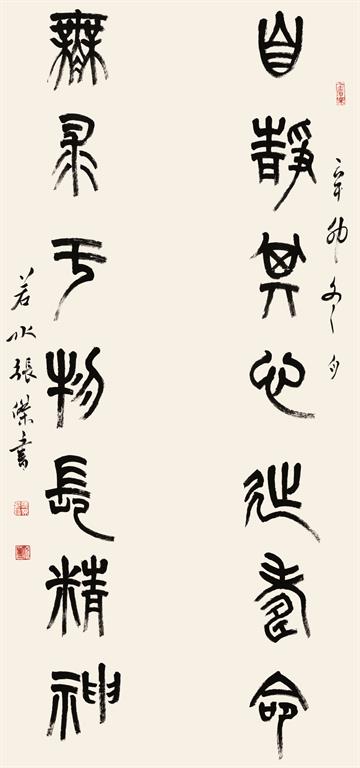 辛卯冬月
自靜其心延壽命
無求于物長精神
若水張書